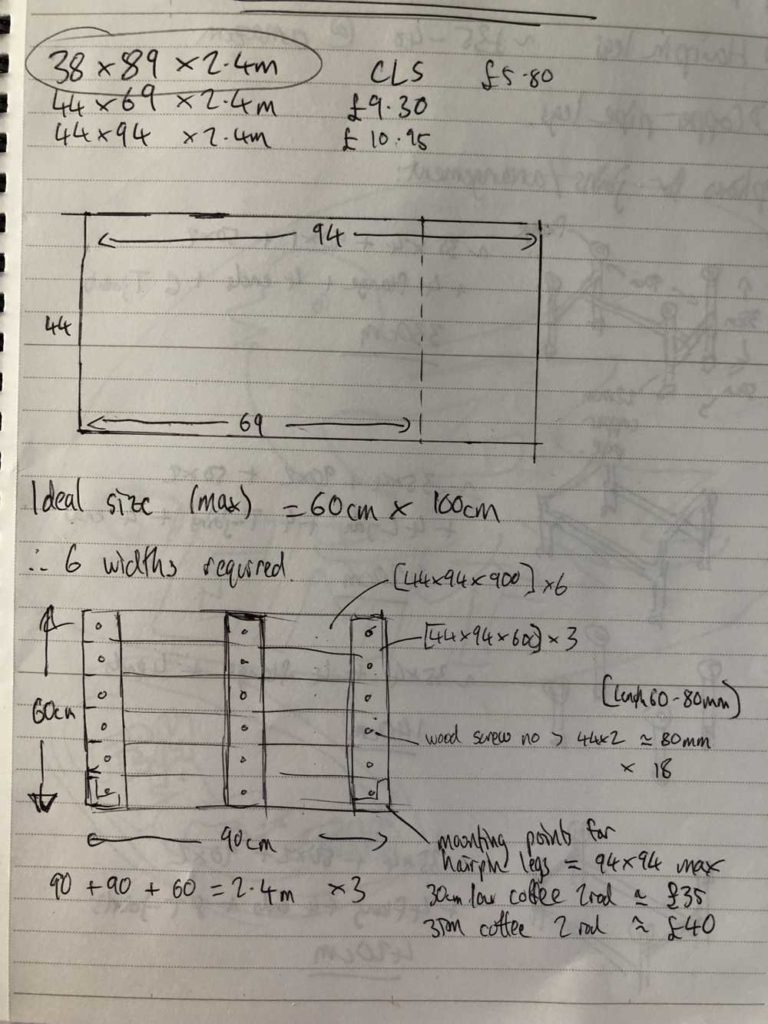 38 × 89 × 2.4m CLS £5.80
44 × 69 × 2.4m £9.30
44 × 94 × 2.4m £10.95
94
44
69
Ideal size (max) = 60cm × 100cm
∴ 6 widths required.
[44×94×900] × 6
[44×94×600] × 3
60cm
(length 60-80mm)
wood screw no > 44×2 ≃ 80mm
× 18
90cm
mounting points for
hairpin legs = 94×94 max
90 + 90 + 60 = 2.4m ×3
30cm low coffee 2 rod ≃ £35
35cm coffee 2 rod ≈ £40